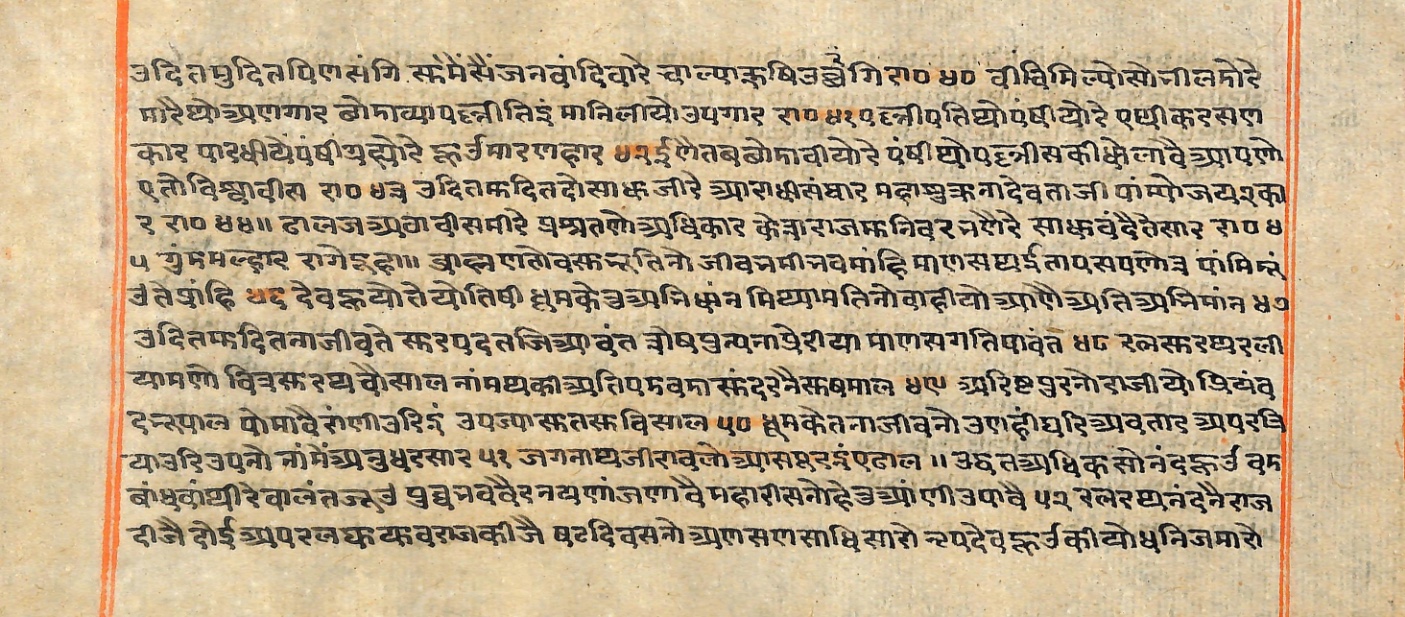 उदितमुदितपिणसंगि स्कंमेंसैंजनवांदिवारे चाल्पाक्रषिउच्छंगि रा० ४० वीचिमिल्योसोनीलमोदे
मारैथोअणगार बोमाव्यापल्लीतिइं मानिलीयोउपगार रा० ४१ पल्लीपतिथोपंषीयोरे एथीकरसण
कार पारधीयैपंषीग्रह्योरे हूउंमारणहार ४२ ईणैतबबोमावीयोरे पंषीथोपल्लीसकीधोलावैआपणो
एतोविश्वावीस रा० ४३ उदितमदितदोसाधजीरे आराधीसंथार महाशुक्रनादेवताजी पांम्योजय२का
र रा० ४४॥ ढालजअठावीसमीरे प्रश्नतणोअधिकार केशराजमुनिवरभणैरे साधवंदैतेसार रा० ४
५ गुंममल्हार रागेदूहा॥ ब्राह्मणतोवसुभूतिनो जीवभमीभवमांहि माणसथईतापसपणो पांमि
उंतेप्रांहि ४६ देवहूयोतेयोतिषी धूमकेतुअभिधांन मिथ्यामतिनोवाहीयो आणैअतिअभिमांन ४७
उदितमदितनाजीवते सुरपदतजिआवंत पुन्यनाप्रेरीया माणसगतिपावंत ४८ रत्नसुरथरली
यामणो विचसुरथचौसाल नांमथकीअतिपदमा सुंदरनैसुषमाल ४९ अरिष्टपुरनोराजीयो प्रियंव
दभूपाल पोमावैरांणीउरिइं उपज्यासुतसुविसाल ५० धूमकेतनाजीवनो उणहींघरिअवतार अपरत्रि
याउरिउपनो नांमेंअनुधरसार ५१ जगनाथजीरावलोआसथूरइंएढाल॥ उद्धतअधिकसोनंदहूउं वदम
बांधकांथीरेवालंतजूउं पुद्वभववैरनयणांजणावै महारीसनोहेतुआंणीउपावै ५२ रत्नरथनंदनैराज
दीजै दोईअपरलघुयुवराजकीजै षटदिवसनोअणसणसाधिसारो नृपदेवहूउंकीयोधनिजमारो